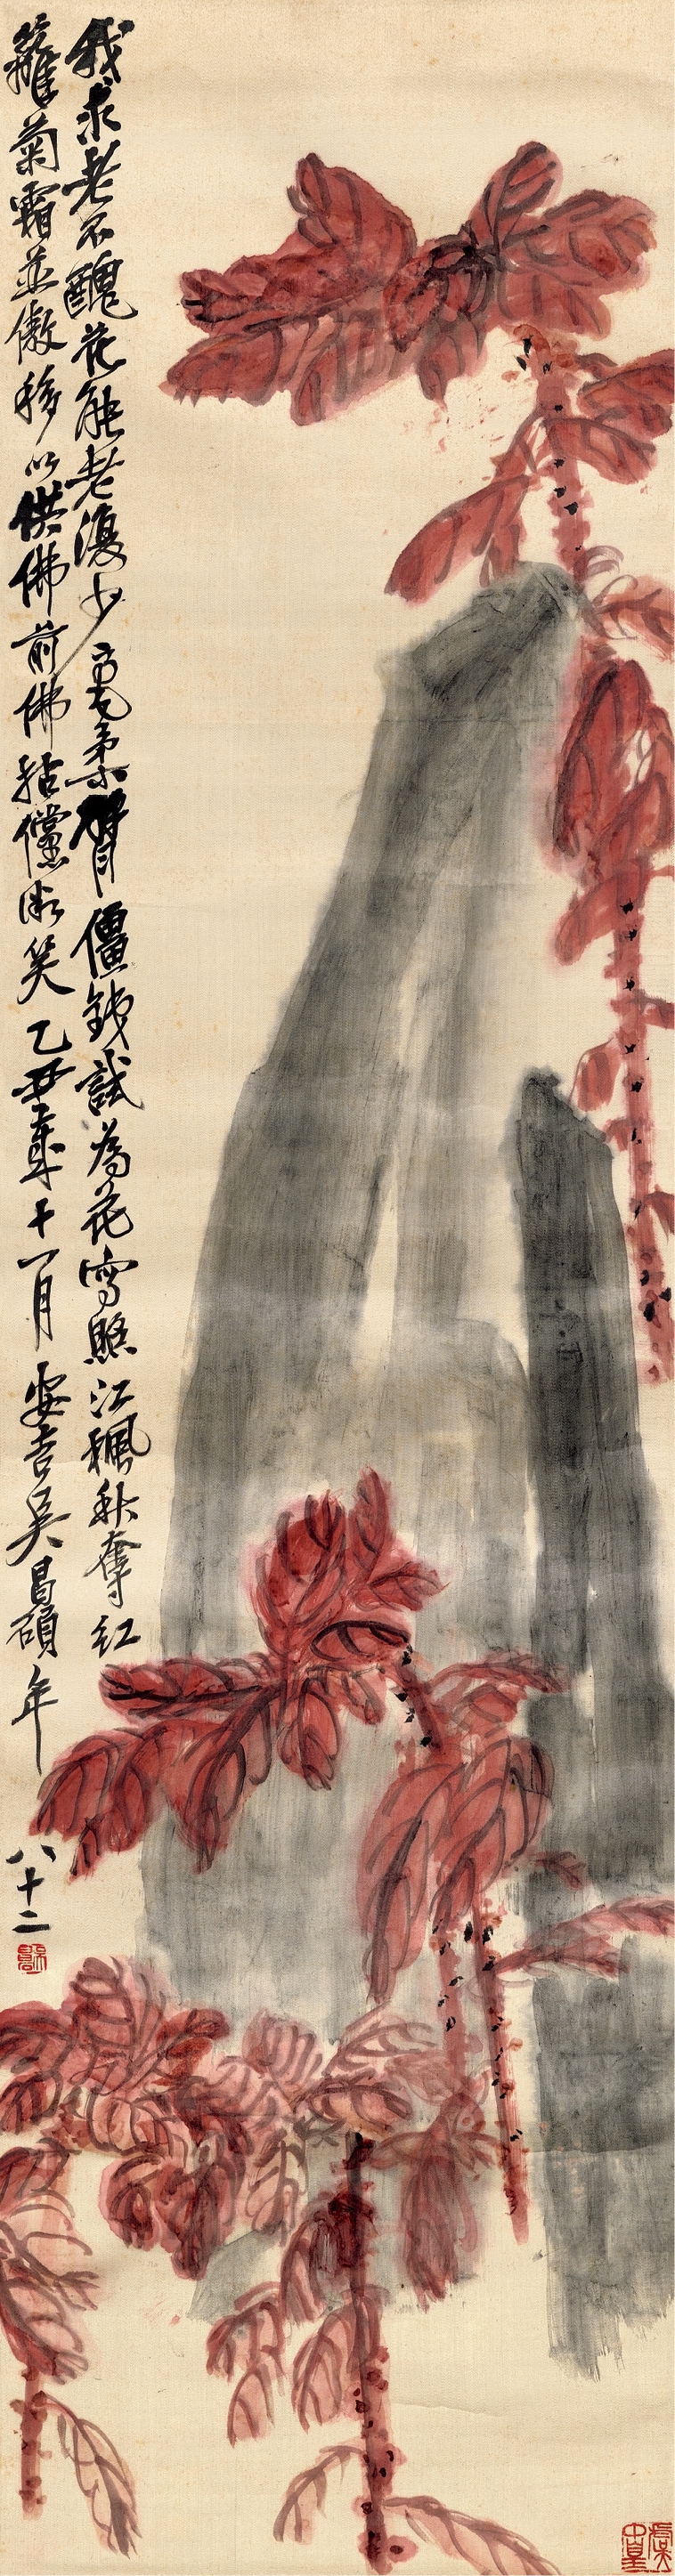 我求老不醜花能老復少毫柔臂僵鐵試為花寫照江楓秋奪紅
籬菊霜並傲移以供佛前佛拈儻微笑乙丑歲十一月安吉吳昌碩年八十二